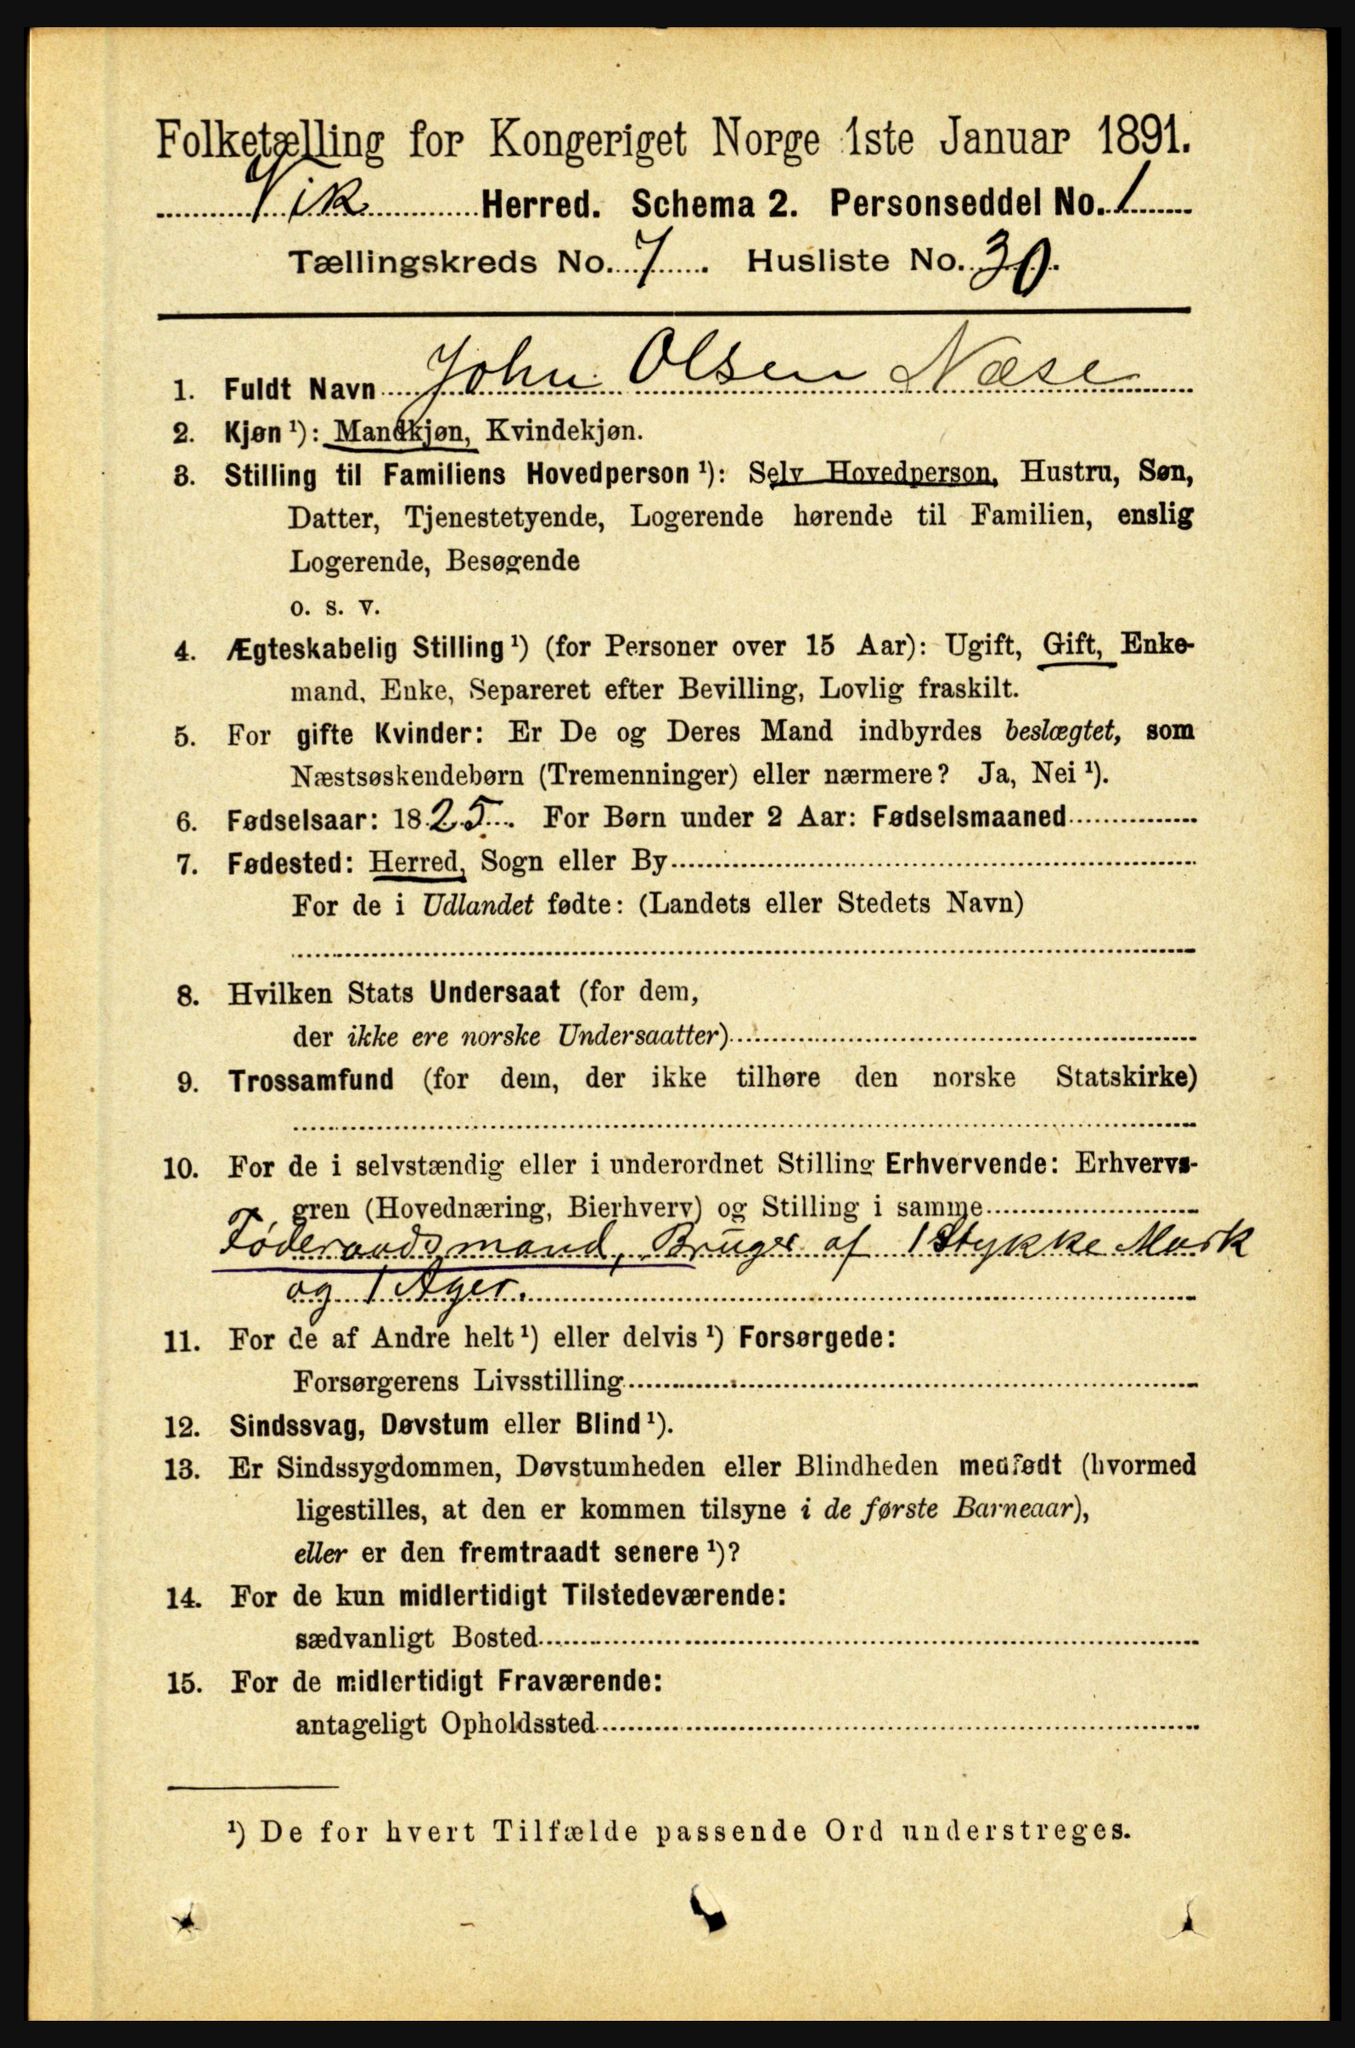 Folketælling for Kongeriget Norge 1ste Januar 1891.
Vik Herred. Schema 2. Personseddel No. 1
Tællingskreds No. 7. Husliste No. 30.
1. Fuldt Navn John Olsen Næse
2. Kjøn ¹): Mandkjøn, Kvindekjøn.
3. Stilling til Familiens Hovedperson ¹): Selv Hovedperson, Hustru, Søn,
Datter, Tjenestetyende, Logerende hørende til Familien, enslig
Logerende, Besøgende
o. s. v.
4. Ægteskabelig Stilling ¹) (for Personer over 15 Aar): Ugift, Gift, Enke-
mand, Enke, Separeret efter Bevilling, Lovlig fraskilt.
5. For gifte Kvinder: Er De og Deres Mand indbyrdes beslægtet, som
Næstsøskendebørn (Tremenninger) eller nærmere? Ja, Nei ¹).
6. Fødselsaar: 1825. For Børn under 2 Aar: Fødselsmaaned
7. Fødested: Herred, Sogn eller By
For de i Udlandet fødte: (Landets eller Stedets Navn)
8. Hvilken Stats Undersaat (for dem,
der ikke ere norske Undersaatter)
9. Trossamfund (for dem, der ikke tilhøre den norske Statskirke)
10. For de i selvstændig eller i underordnet Stilling Erhvervende: Erhvervs-
gren (Hovednæring, Bierhverv) og Stilling i samme
Føderaadsmand, Bruger af 1 Stykke Mark
og 1 Ager.
11. For de af Andre helt ¹) eller delvis ¹) Forsørgede:
Forsørgerens Livsstilling
12. Sindssvag, Døvstum eller Blind ¹).
13. Er Sindssygdommen, Døvstumheden eller Blindheden medfødt (hvormed
ligestilles, at den er kommen tilsyne i de første Barneaar),
eller er den fremtraadt senere ¹)?
14. For de kun midlertidigt Tilstedeværende:
sædvanligt Bosted
15. For de midlertidigt Fraværende:
antageligt Opholdssted
¹) De for hvert Tilfælde passende Ord understreges.